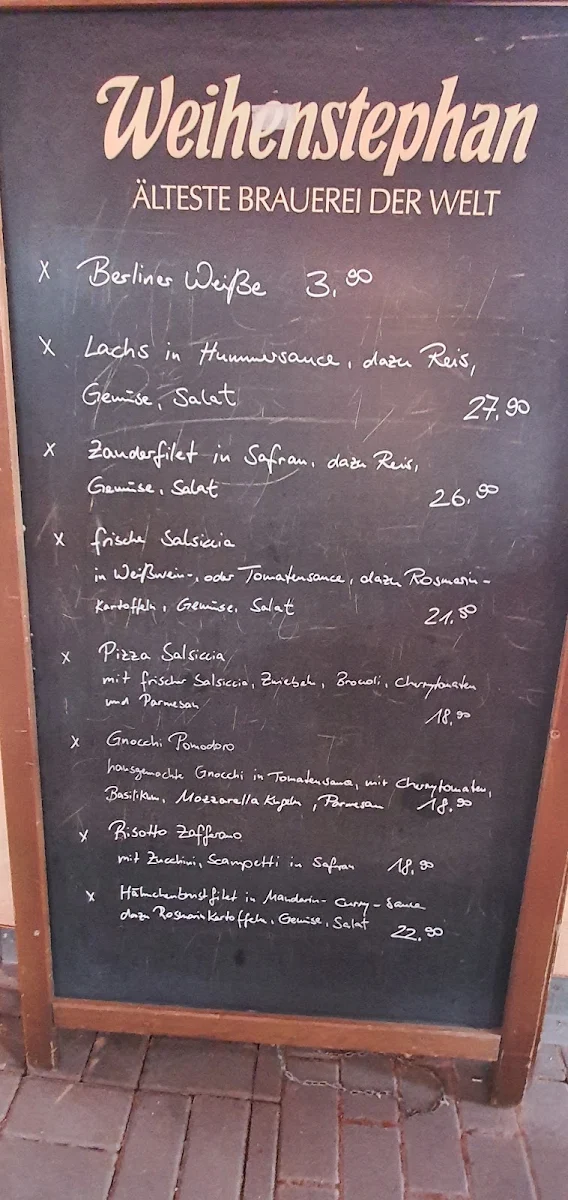 Weihenstephan
ÄLTESTE BRAUEREI DER WELT
x Berliner Weiße 3,90
x Lachs in Hummersauce, dazu Reis,
Gemüse, Salat 27,90
x Zanderfilet in Safran, dazu Reis,
Gemüse, Salat 26,90
x frische Salsiccia
in Weißwein-, oder Tomatensauce, dazu Rosmarin-
kartoffeln, Gemüse, Salat 21,80
x Pizza Salsiccia
mit frischer Salsiccia, Zwiebeln, Brocoli, Cherrytomaten
und Parmesan
18,90
x Gnocchi Pomodoro
hausgemachte Gnocchi in Tomatensauce, mit Cherrytomaten,
Basilikum, Mozzarella Kugeln, Parmesan 18,90
x Risotto Zafferano
mit Zucchini, Scampetti in Safran 18,90
x Hähnchenbrustfilet in Mandarin-Curry-Sauce
dazu Rosmarinkartoffeln, Gemüse, Salat 22,90